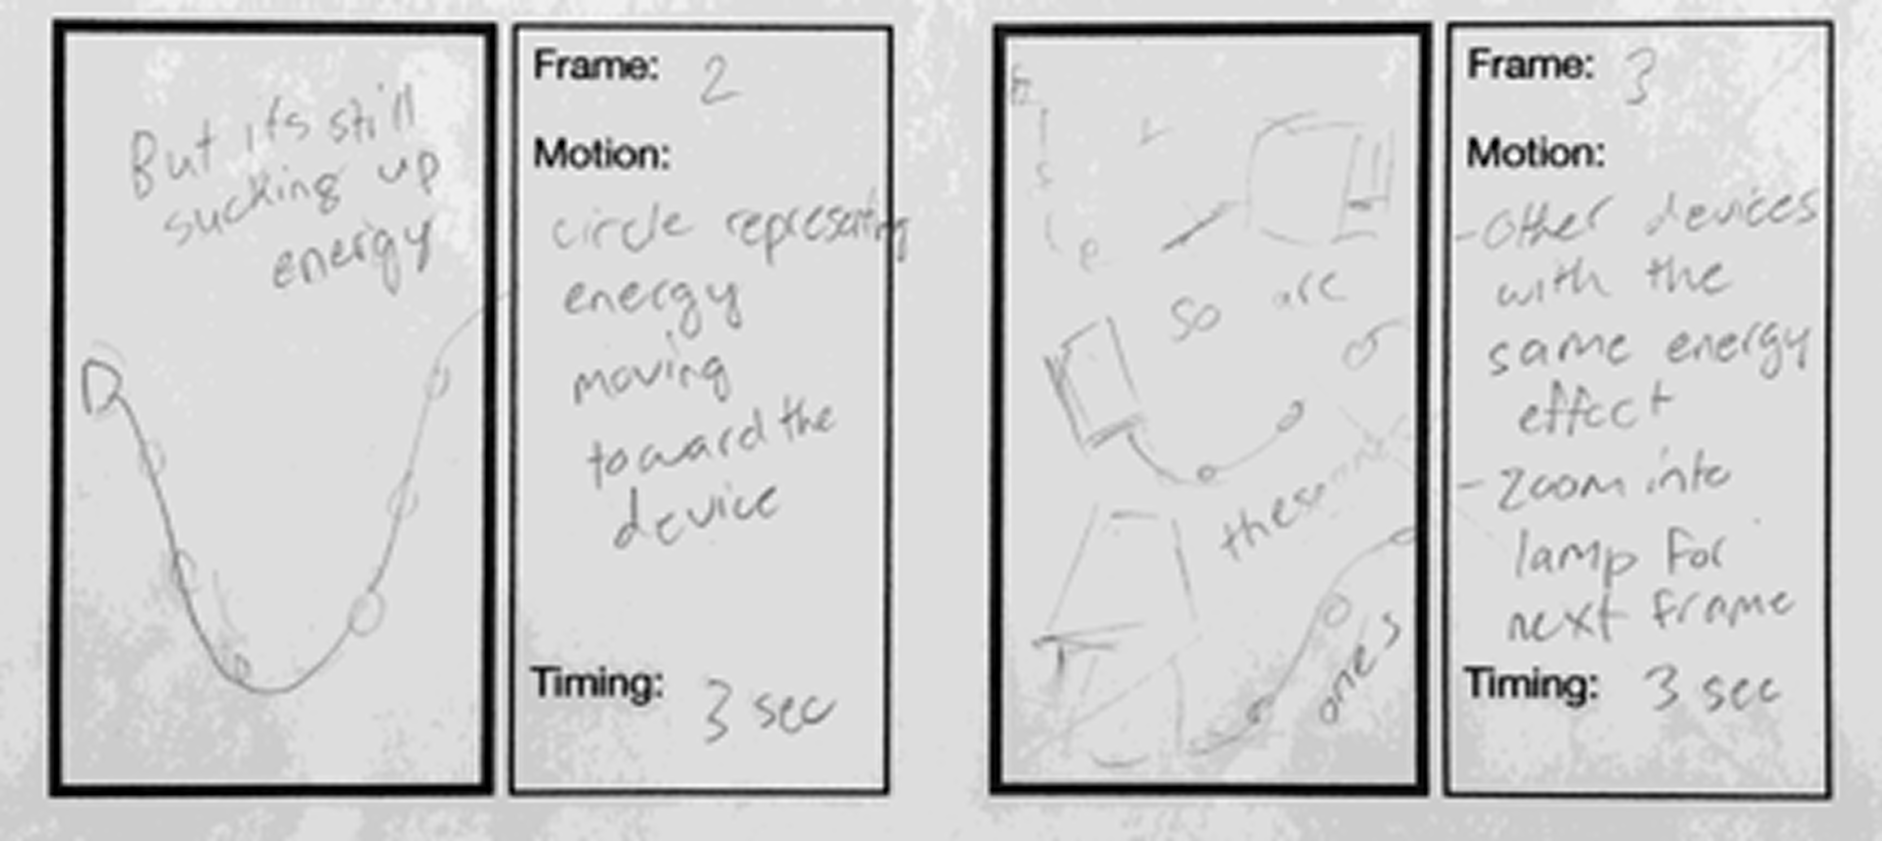 But its still
sucking up
energy
Frame: 2
Motion:
circle representing
energy
moving
toward the
device
Timing: 3 sec
so are
these
ones
Frame: 3
Motion:
- Other devices
with the
same energy
effect
- Zoom into
lamp for
next frame
Timing: 3 sec